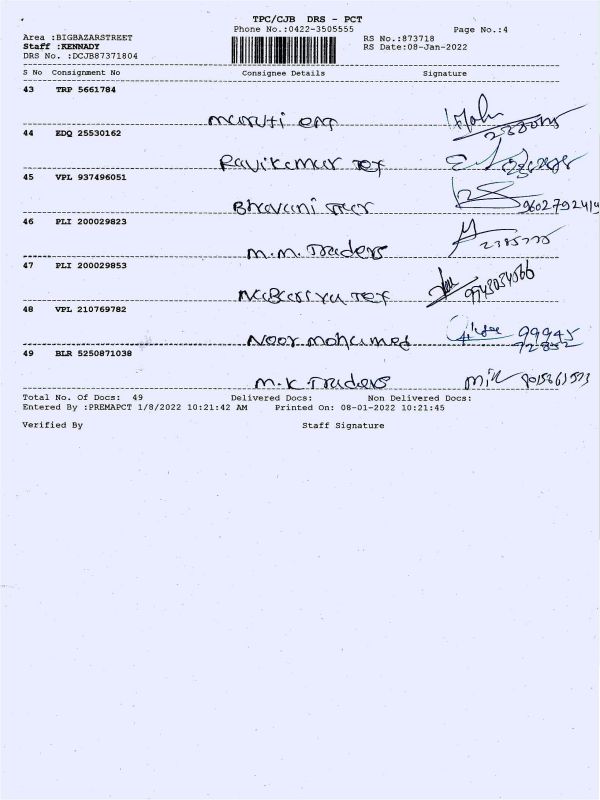 TPC/CJB DRS - PCT
Phone No.:0422-3505555 Page No.:4
Area :BIGBAZARSTREET RS No.:873718
Staff :KENNADY RS Date:08-Jan-2022
DRS No. :DCJB87371804
S No Consignment No Consignee Details Signature
43 TRP 5661784
maruti
44 EDQ 25530162
Ravikumar Tex
45 VPL 937496051
Bhavani 9602792419
46 PLI 200029823
M.M. Traders
47 PLI 200029853
Tex
48 VPL 210769782
Noor mohamed 99945
72852
49 BLR 5250871038
M.K Traders
Total No. Of Docs: 49 Delivered Docs: Non Delivered Docs:
Entered By :PREMAPCT 1/8/2022 10:21:42 AM Printed On: 08-01-2022 10:21:45
Verified By Staff Signature